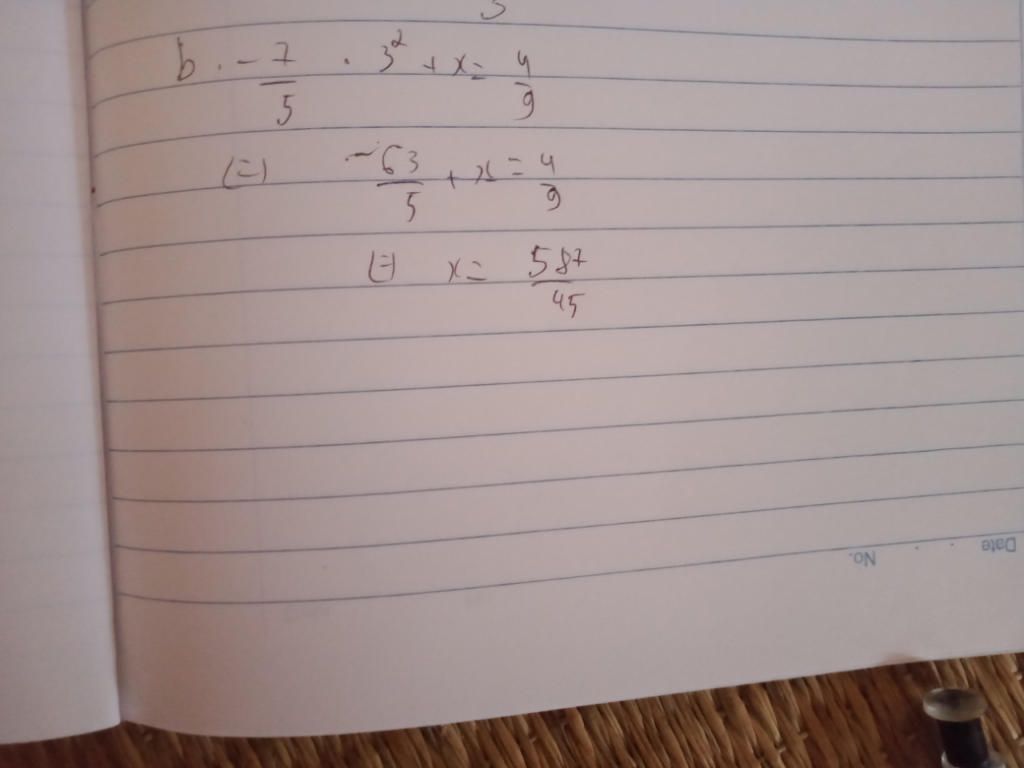 b. -7/5 . 3² + x = 4/9
(=) -63/5 + x = 4/9
(=) x = 587/45
No.
Date . .